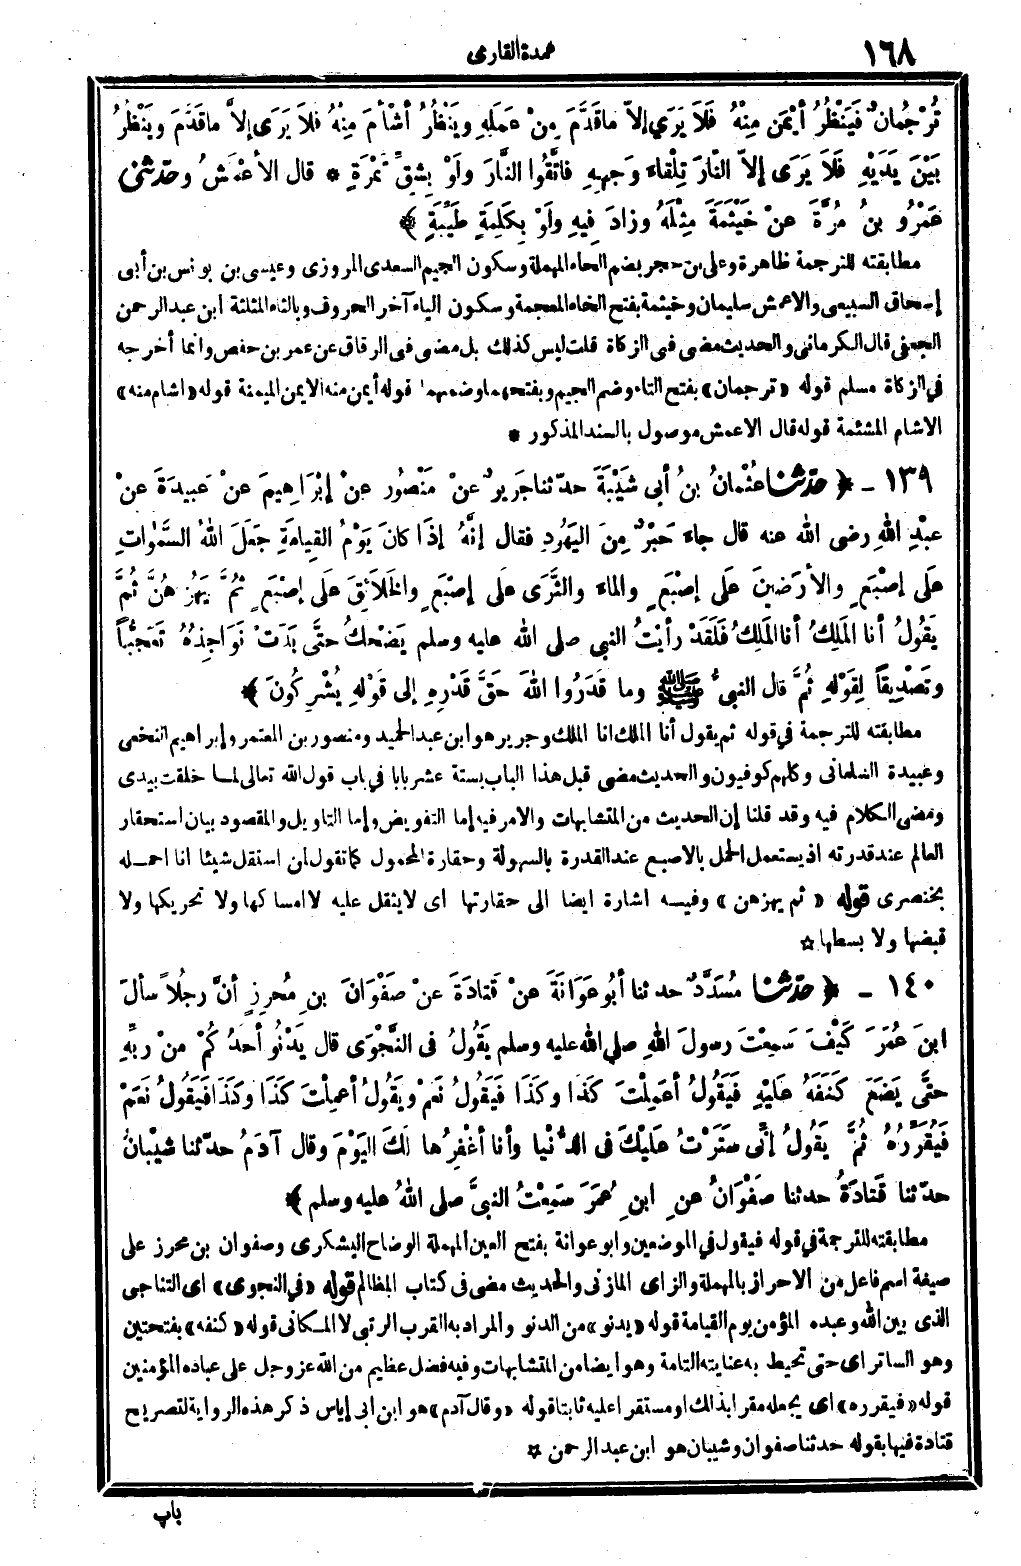 ١٦٨
عمدة القارى
تُرْجُمانٌ فَيَنْظُرُ أيْمَنَ مِنْهُ فَلَا يَرَى إلاَّ ماقَدَّمَ مِنْ عَمَلِهِ ويَنْظُرُ أشْأَمَ مِنْهُ فَلاَ يَرَى إلاَّ ماقَدَّمَ ويَنْظُرُ
بَيْنَ يَدَيْهِ فَلَا يَرَى إلاَّ النَّارَ تِلْقاءَ وَجهِهِ فاتَّقُوا النَّارَ ولَوْ بِشِقِّ تَمْرَةٍ * قال الأعْمَشُ وحدّثنى
عَمْرُو بنُ مُرَّةَ عنْ خَيْثَمَةَ مِثْلَهُ وزادَ فِيهِ ولَوْ بِكَلِمَةٍ طَيِّبَةٍ ﴾
مطابقته للترجمة ظاهرة وعلى بن حجر بضم الحاء المهملة وسكون الجيم السعدى المروزى وعيسى بن يونس بن أبى
إسحاق السبيعى والاعمش سليمان وخيثمة بفتح الخاء المعجمة وسكون الياء آخر الحروف وبالثاء المثلثة ابن عبد الرحمن
الجعفى قال الكرمانى والحديث مضى فى الزكاة قلت ليس كذلك بل مضى فى الرقاق عن عمر بن حفص وانما أخرجه
فى الزكاة مسلم قوله «ترجمان» بفتح التاء وضم الجيم وبفتحهما وضمهما قوله أيمن منه الايمن الميمنة قوله «اشام منه»
الاشام المشئمة قوله قال الاعمش موصول بالسند المذكور *
١٣٩ - ﴿ حدّثنا عُثْمانُ بنُ أبى شَيْبَةَ حدّثنا جَرِيرٌ عنْ مَنْصُورٍ عنْ إبْرَاهِيمَ عنْ عَبِيدَةَ عنْ
عبْدِ اللهِ رضى الله عنه قال جاءَ حَبْرٌ مِنَ اليَهُودِ فقال إنَّهُ إذَا كانَ يَوْمُ القِيامَةِ جَعَلَ اللهُ السَّمٰواتِ
عَلَى إصْبَعٍ والأرَضِينَ عَلَى إصْبَعٍ والماءَ والثَّرَى عَلَى إصْبَعٍ والخَلَائِقَ عَلَى إصْبَعٍ ثُمَّ يَهُزُّهُنَّ ثُمَّ
يَقُولُ أنا المَلِكُ أنا المَلِكُ فَلَقَدْ رأيْتُ النبى صلى الله عليه وسلم يَضْحَكُ حتَّى بَدَتْ نَوَاجِذُهُ تَعَجُّباً
وتَصْدِيقاً لِقَوْلِهِ ثُمَّ قال النبىُّ ﷺ وما قَدَرُوا اللهَ حَقَّ قَدْرِهِ إلى قَوْلِهِ يُشْرِكُونَ ﴾
مطابقته للترجمة فى قوله ثم يقول أنا الملك انا الملك وجرير هو ابن عبد الحميد ومنصور بن المعتمر وإبراهيم النخعى
وعبيدة السلمانى وكلهم كوفيون والحديث مضى قبل هذا الباب بستة عشر بابا فى باب قول الله تعالى لما خلقت بيدى
ومضى الكلام فيه وقد قلنا إن الحديث من المتشابهات والامر فيه إما التفويض وإما التاويل والمقصود بيان استحقار
العالم عند قدرته اذ يستعمل الحمل بالاصبع عند القدرة بالسهولة وحقارة المحمول كما تقول لمن استقل شيئا انا احمله
بخنصرى قوله «ثم يهزهن» وفيه اشارة ايضا الى حقارتها اى لايثقل عليه لا امساكها ولا تحريكها ولا
قبضها ولا بسطها ☆
١٤٠ - ﴿ حدّثنا مُسَدَّدٌ حدثنا أبُو عَوَانَةَ عنْ قَتَادَةَ عنْ صَفْوَانَ بنِ مُحرِزٍ أنَّ رجُلاً سألَ
ابنَ عُمَرَ كَيْفَ سَمِعْتَ رسولَ اللهِ صلى الله عليه وسلم يَقُولُ فى النَّجْوَى قال يَدْنُو أحَدُكُمْ منْ ربِّهِ
حتَّى يَضَعَ كَنَفَهُ عَلَيْهِ فَيَقُولُ أعَمِلْتَ كَذَا وكَذَا فَيَقُولُ نَعَمْ ويَقُولُ أعمِلْتَ كَذَا وكَذَا فَيَقُولُ نَعَمْ
فَيُقَرِّرُهُ ثُمَّ يَقُولُ إنِّى سَتَرْتُ عَلَيْكَ فى الدُّنْيا وأنا أغْفِرُها لَكَ اليَوْمَ وقال آدَمُ حدّثنا شَيْبانُ
حدّثنا قَتادَةُ حدثنا صَفْوَانُ عنِ ابنِ عُمَرَ سَمِعْتُ النبىَّ صلى اللهُ عليه وسلم ﴾
مطابقته للترجمة فى قوله فيقول فى الموضعين وابو عوانة بفتح العين المهملة الوضاح اليشكرى وصفوان بن محرز على
صيغة اسم فاعل من الاحراز بالمهملة والزاى المازنى والحديث مضى فى كتاب المظالم قوله «فى النجوى» اى التناجى
الذى بين الله وعبده المؤمن يوم القيامة قوله «يدنو» من الدنو والمراد به القرب الرتبى لا المكانى قوله «كنفه» بفتحتين
وهو الساتر اى حتى تحيط به عنايته التامة وهو ايضا من المتشابهات وفيه فضل عظيم من الله عز وجل على عباده المؤمنين
قوله «فيقرره» اى يجعله مقرا بذلك او مستقرا عليه ثابتا قوله «وقال آدم» هو ابن ابى إياس ذكر هذه الرواية لتصريح
قتادة فيها بقوله حدثنا صفوان وشيبان هو ابن عبد الرحمن ☆
باپ